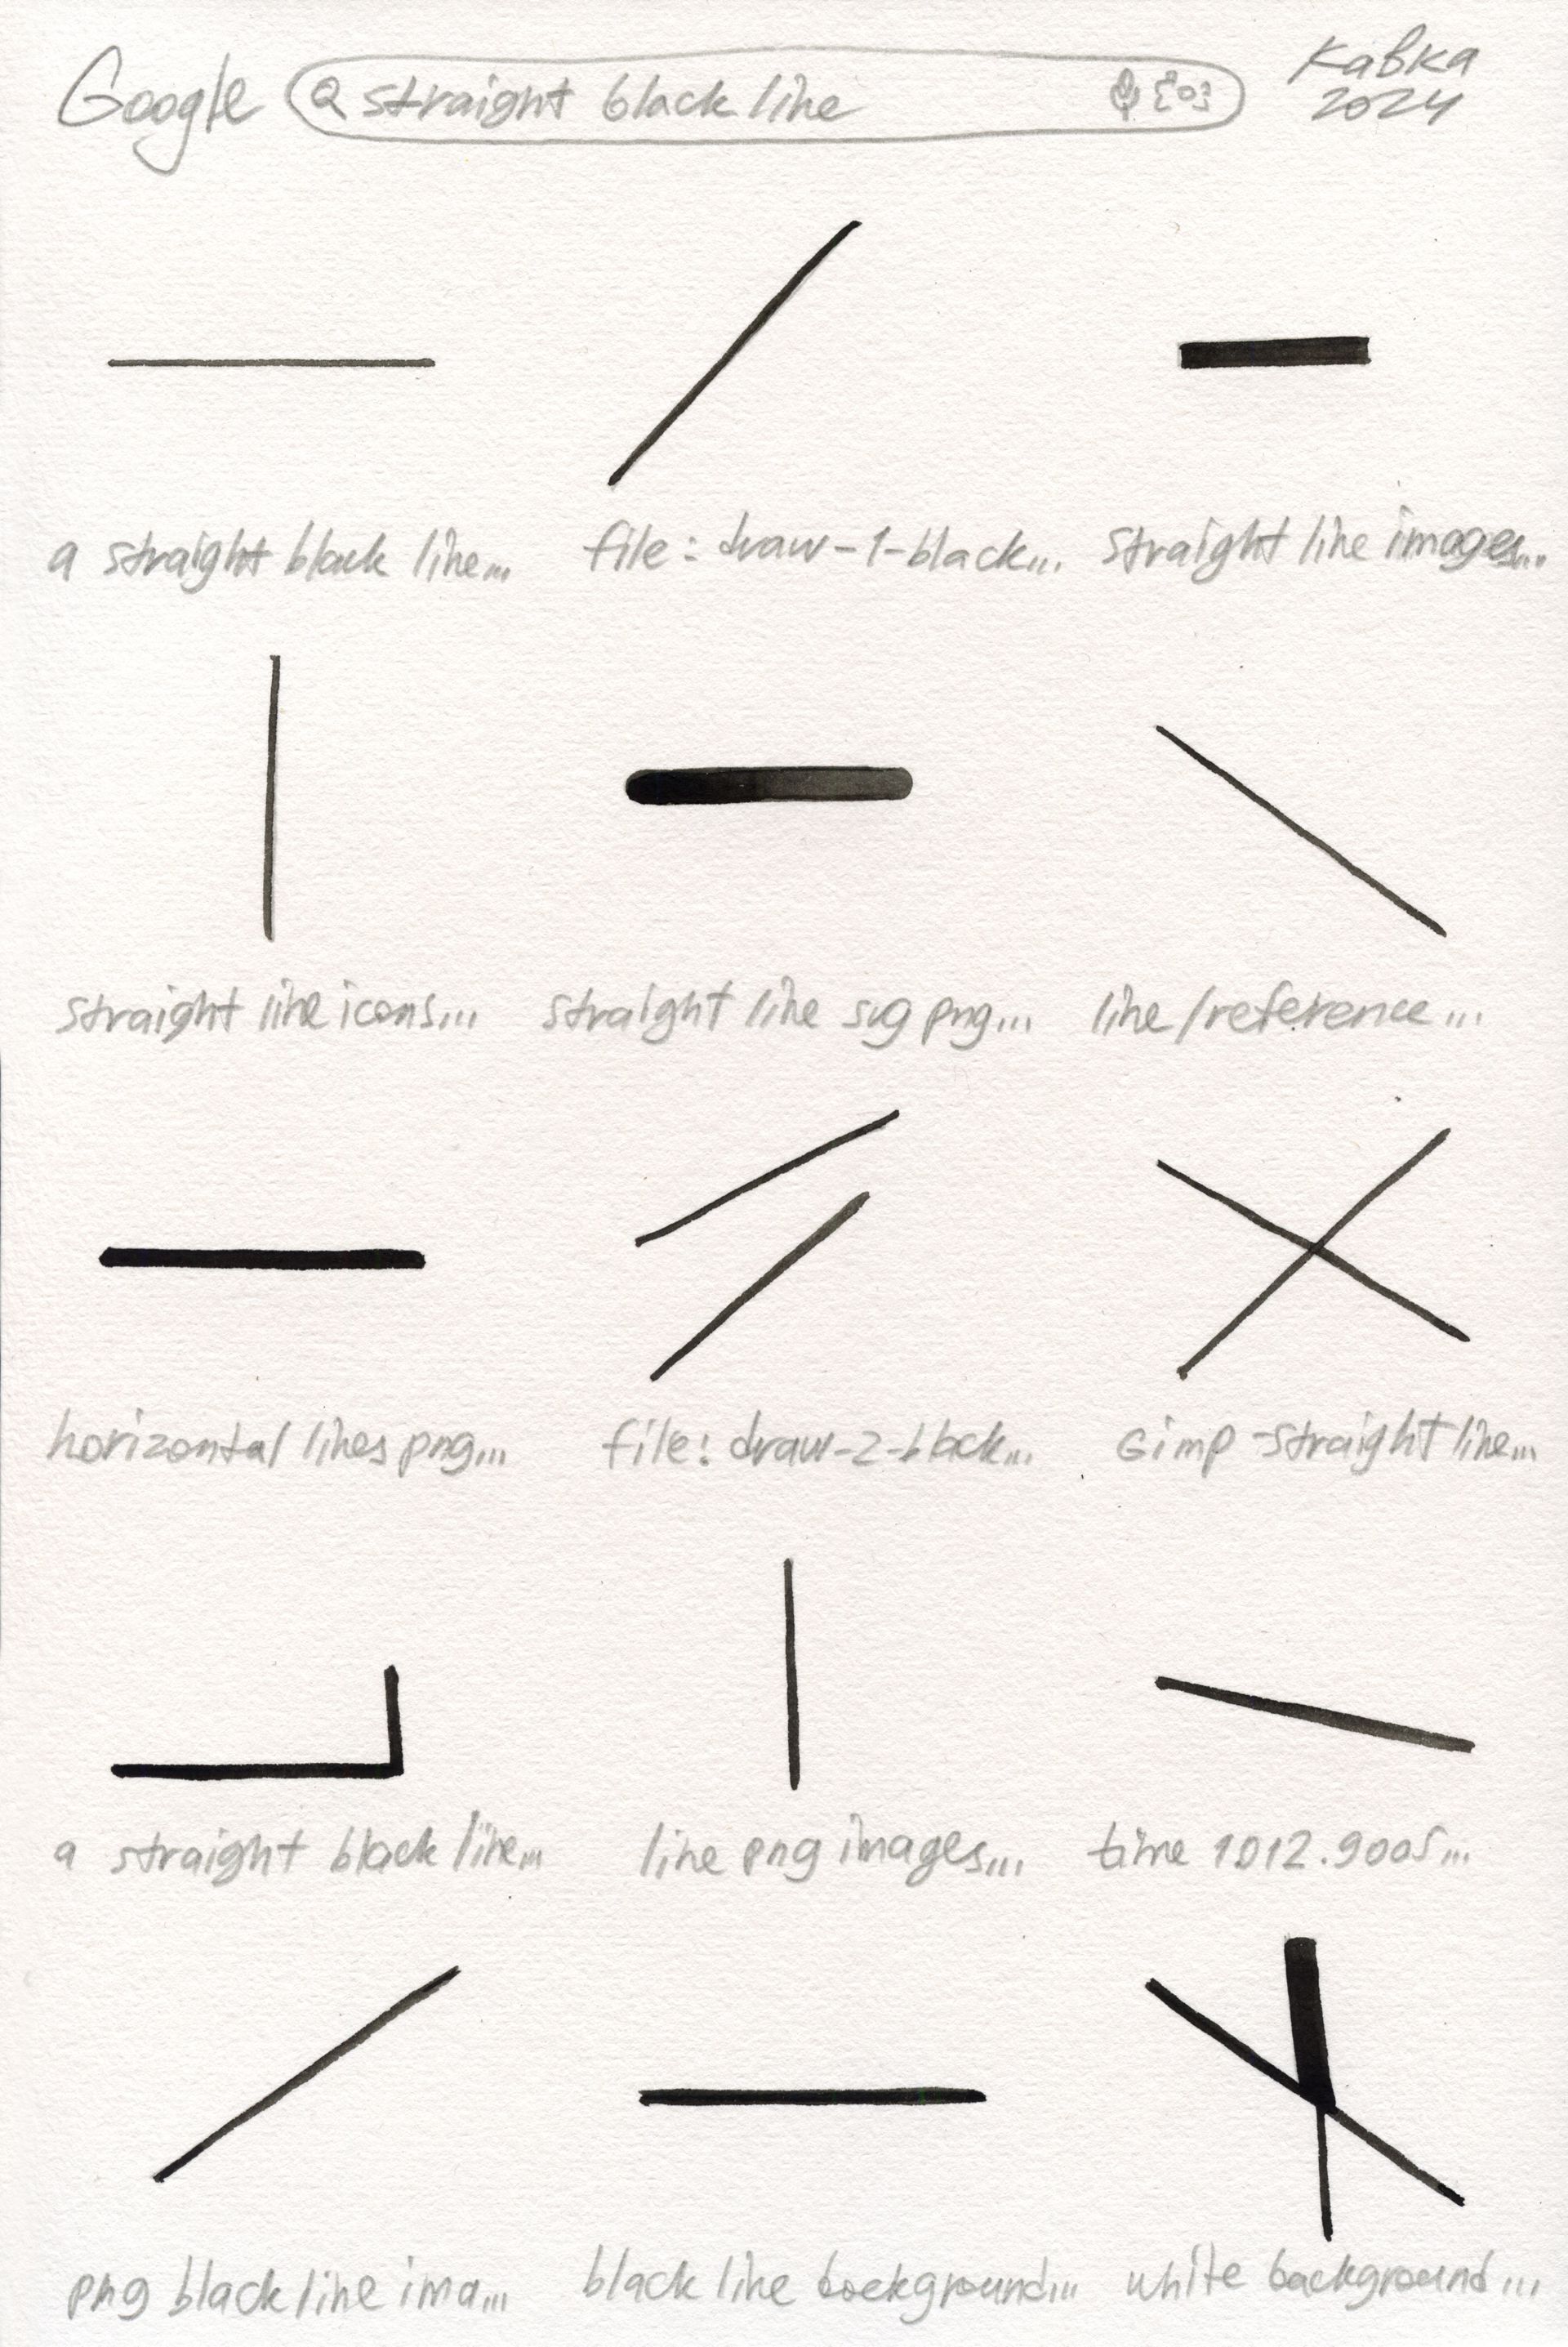 Google straight black line
Кавка
2024
a straight black line...
file: draw-1-black...
straight line images...
straight line icons...
straight line svg png...
line/reference...
horizontal lines png...
file: draw-2-black...
Gimp-straight line...
a straight black line...
line png images...
time 1012.900s...
png black line ima...
black line background...
white background...